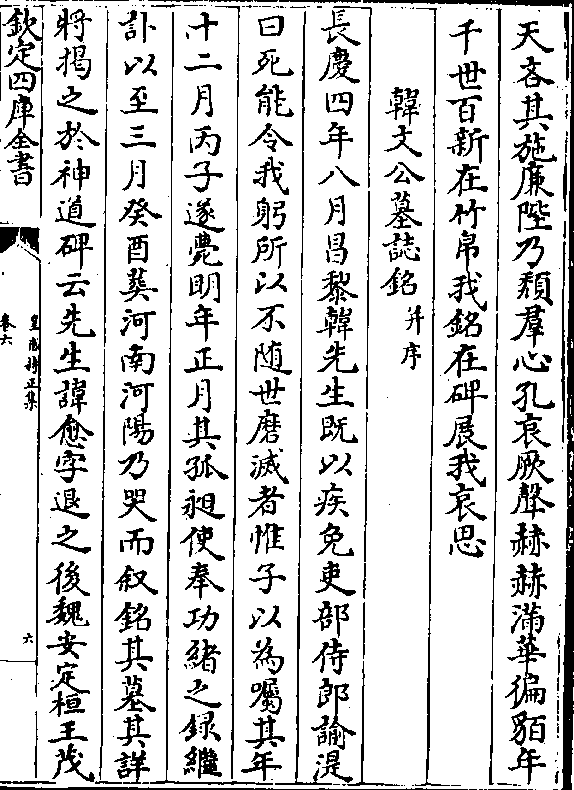 天吝其施廉陛乃頽羣心孔哀厥聲赫赫滿華徧貊年
千世百新在竹帛我銘在碑展我哀思
韓文公墓誌銘并序
長慶四年八月昌黎韓先生既以疾免吏部侍郎諭湜
曰死能令我躬所以不随世磨滅者惟子以為囑其年
十二月丙子遂薨明年正月其孤昶使奉功緒之録繼
訃以至三月癸酉葬河南河陽乃哭而叙銘其墓其詳
将揭之於神道碑云先生諱愈字退之後魏安定桓王茂
欽定四庫全書
皇甫持正集
卷六
六